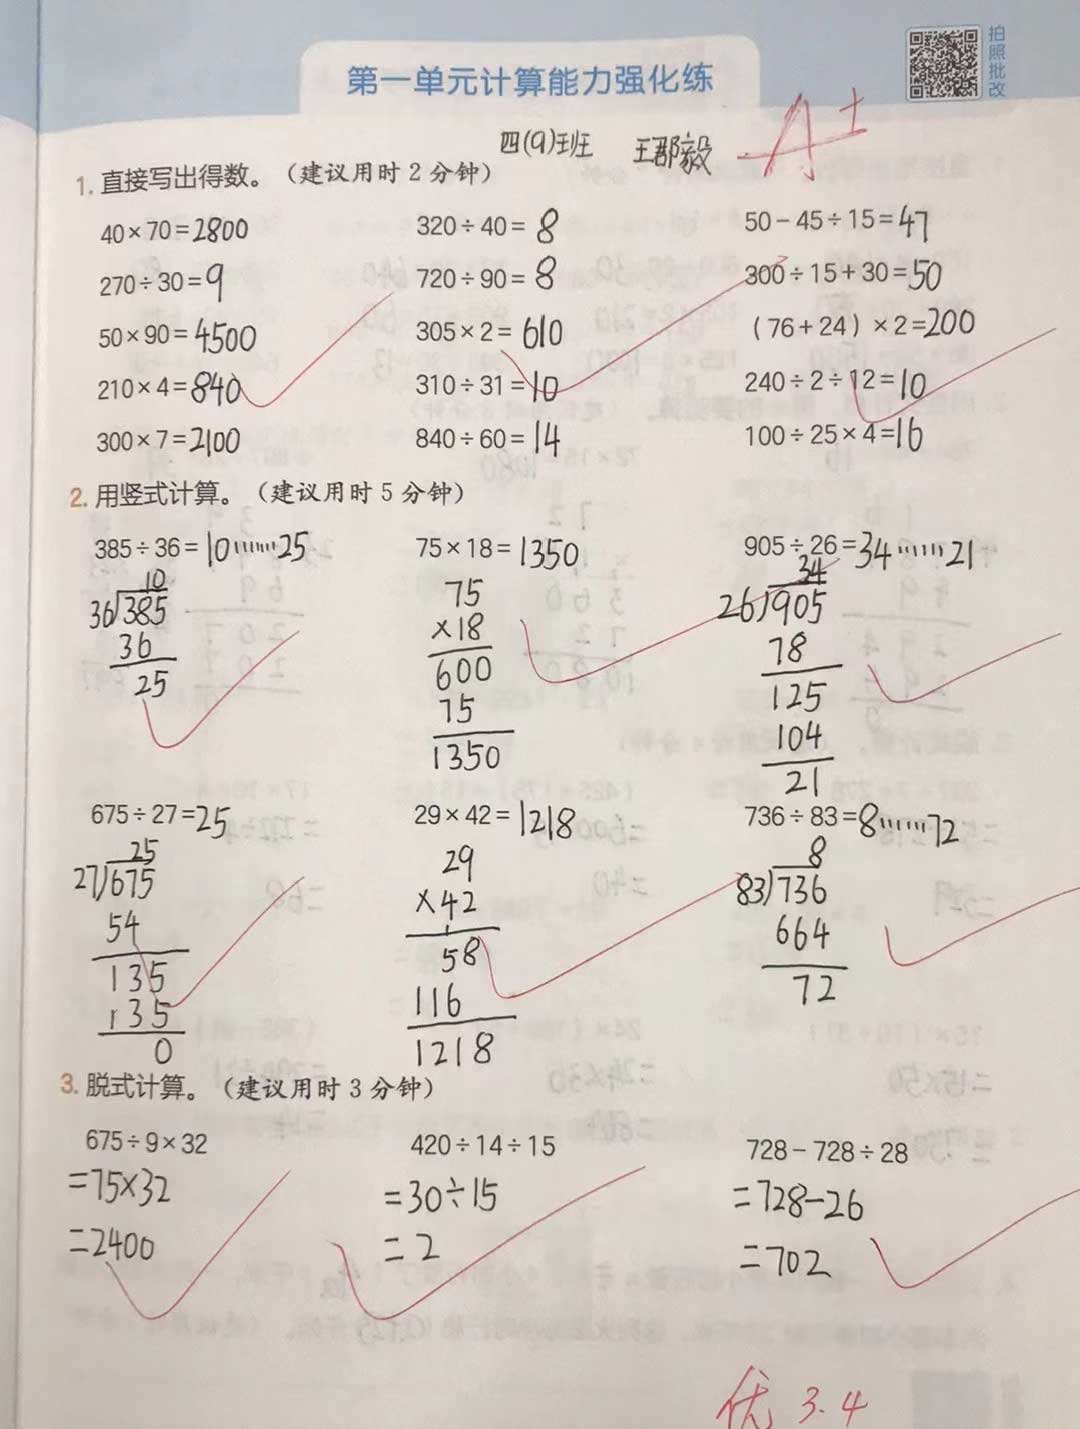 拍照批改
第一单元计算能力强化练
四(9)班 王郡毅 A+
1. 直接写出得数。（建议用时2分钟）
40×70=2800 320÷40=8 50-45÷15=47
270÷30=9 720÷90=8 300÷15+30=50
50×90=4500 305×2=610 （76+24）×2=200
210×4=840 310÷31=10 240÷2÷12=10
300×7=2100 840÷60=14 100÷25×4=16
2. 用竖式计算。（建议用时5分钟）
385÷36=10……25 75×18=1350 905÷26=34……21
10 75 34
36)385 ×18 26)905
36 600 78
25 75 125
1350 104
21
675÷27=25 29×42=1218 736÷83=8……72
25 29 8
27)675 ×42 83)736
54 58 664
135 116 72
135 1218
0
3. 脱式计算。（建议用时3分钟）
675÷9×32 420÷14÷15 728-728÷28
=75×32 =30÷15 =728-26
=2400 =2 =702
优 3.4